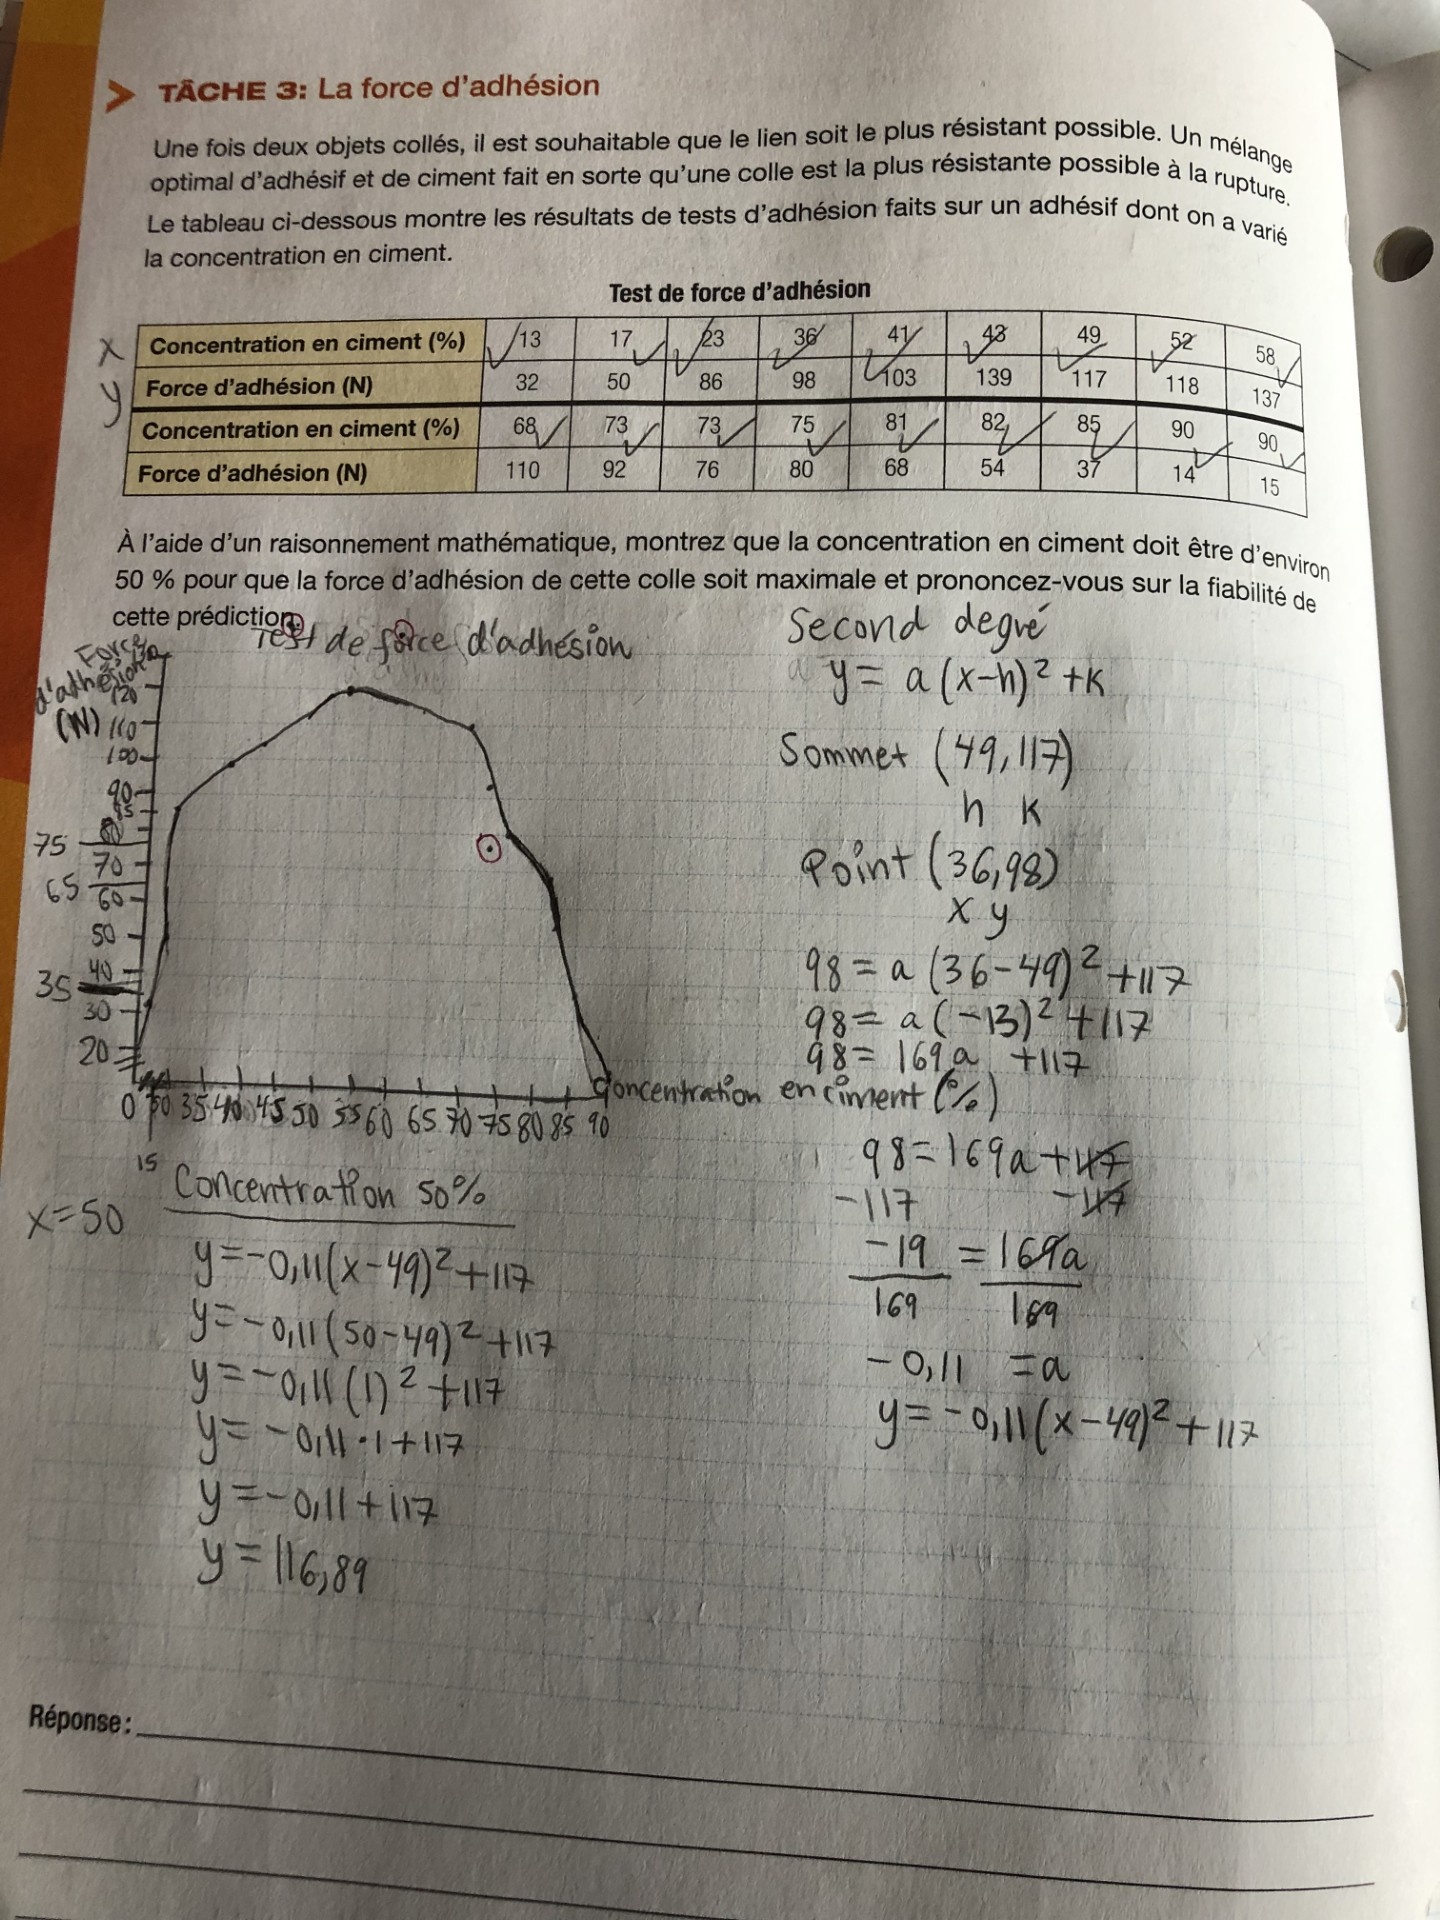 TÂCHE 3: La force d'adhésion
Une fois deux objets collés, il est souhaitable que le lien soit le plus résistant possible. Un mélange
optimal d'adhésif et de ciment fait en sorte qu'une colle est la plus résistante possible à la rupture.
Le tableau ci-dessous montre les résultats de tests d'adhésion faits sur un adhésif dont on a varié
la concentration en ciment.
Test de force d'adhésion
x Concentration en ciment (%) 13 17 23 36 41 43 49 52 58
y Force d'adhésion (N) 32 50 86 98 103 139 117 118 137
Concentration en ciment (%) 68 73 73 75 81 82 85 90 90
Force d'adhésion (N) 110 92 76 80 68 54 37 14 15
À l'aide d'un raisonnement mathématique, montrez que la concentration en ciment doit être d'environ
50 % pour que la force d'adhésion de cette colle soit maximale et prononcez-vous sur la fiabilité de
cette prédiction.
Test de force d'adhésion
Force
d'adhésion
(N)
120
110
100
90
85
80
75
70
65
60
50
40
35
30
20
0 30 35 40 45 50 55 60 65 70 75 80 85 90
15
Concentration en ciment (%)
Second degré
y = a (x-h)² + k
Sommet (49,117)
h k
Point (36,98)
x y
98 = a (36-49)² +117
98 = a (-13)² +117
98 = 169a +117
98 = 169a +117
-117 -117
-19 = 169a
169 169
-0,11 = a
y = -0,11(x-49)² + 117
Concentration 50%
x=50
y=-0,11(x-49)²+117
y=-0,11(50-49)²+117
y=-0,11(1)²+117
y=-0,11·1+117
y=-0,11+117
y=116,89
Réponse: